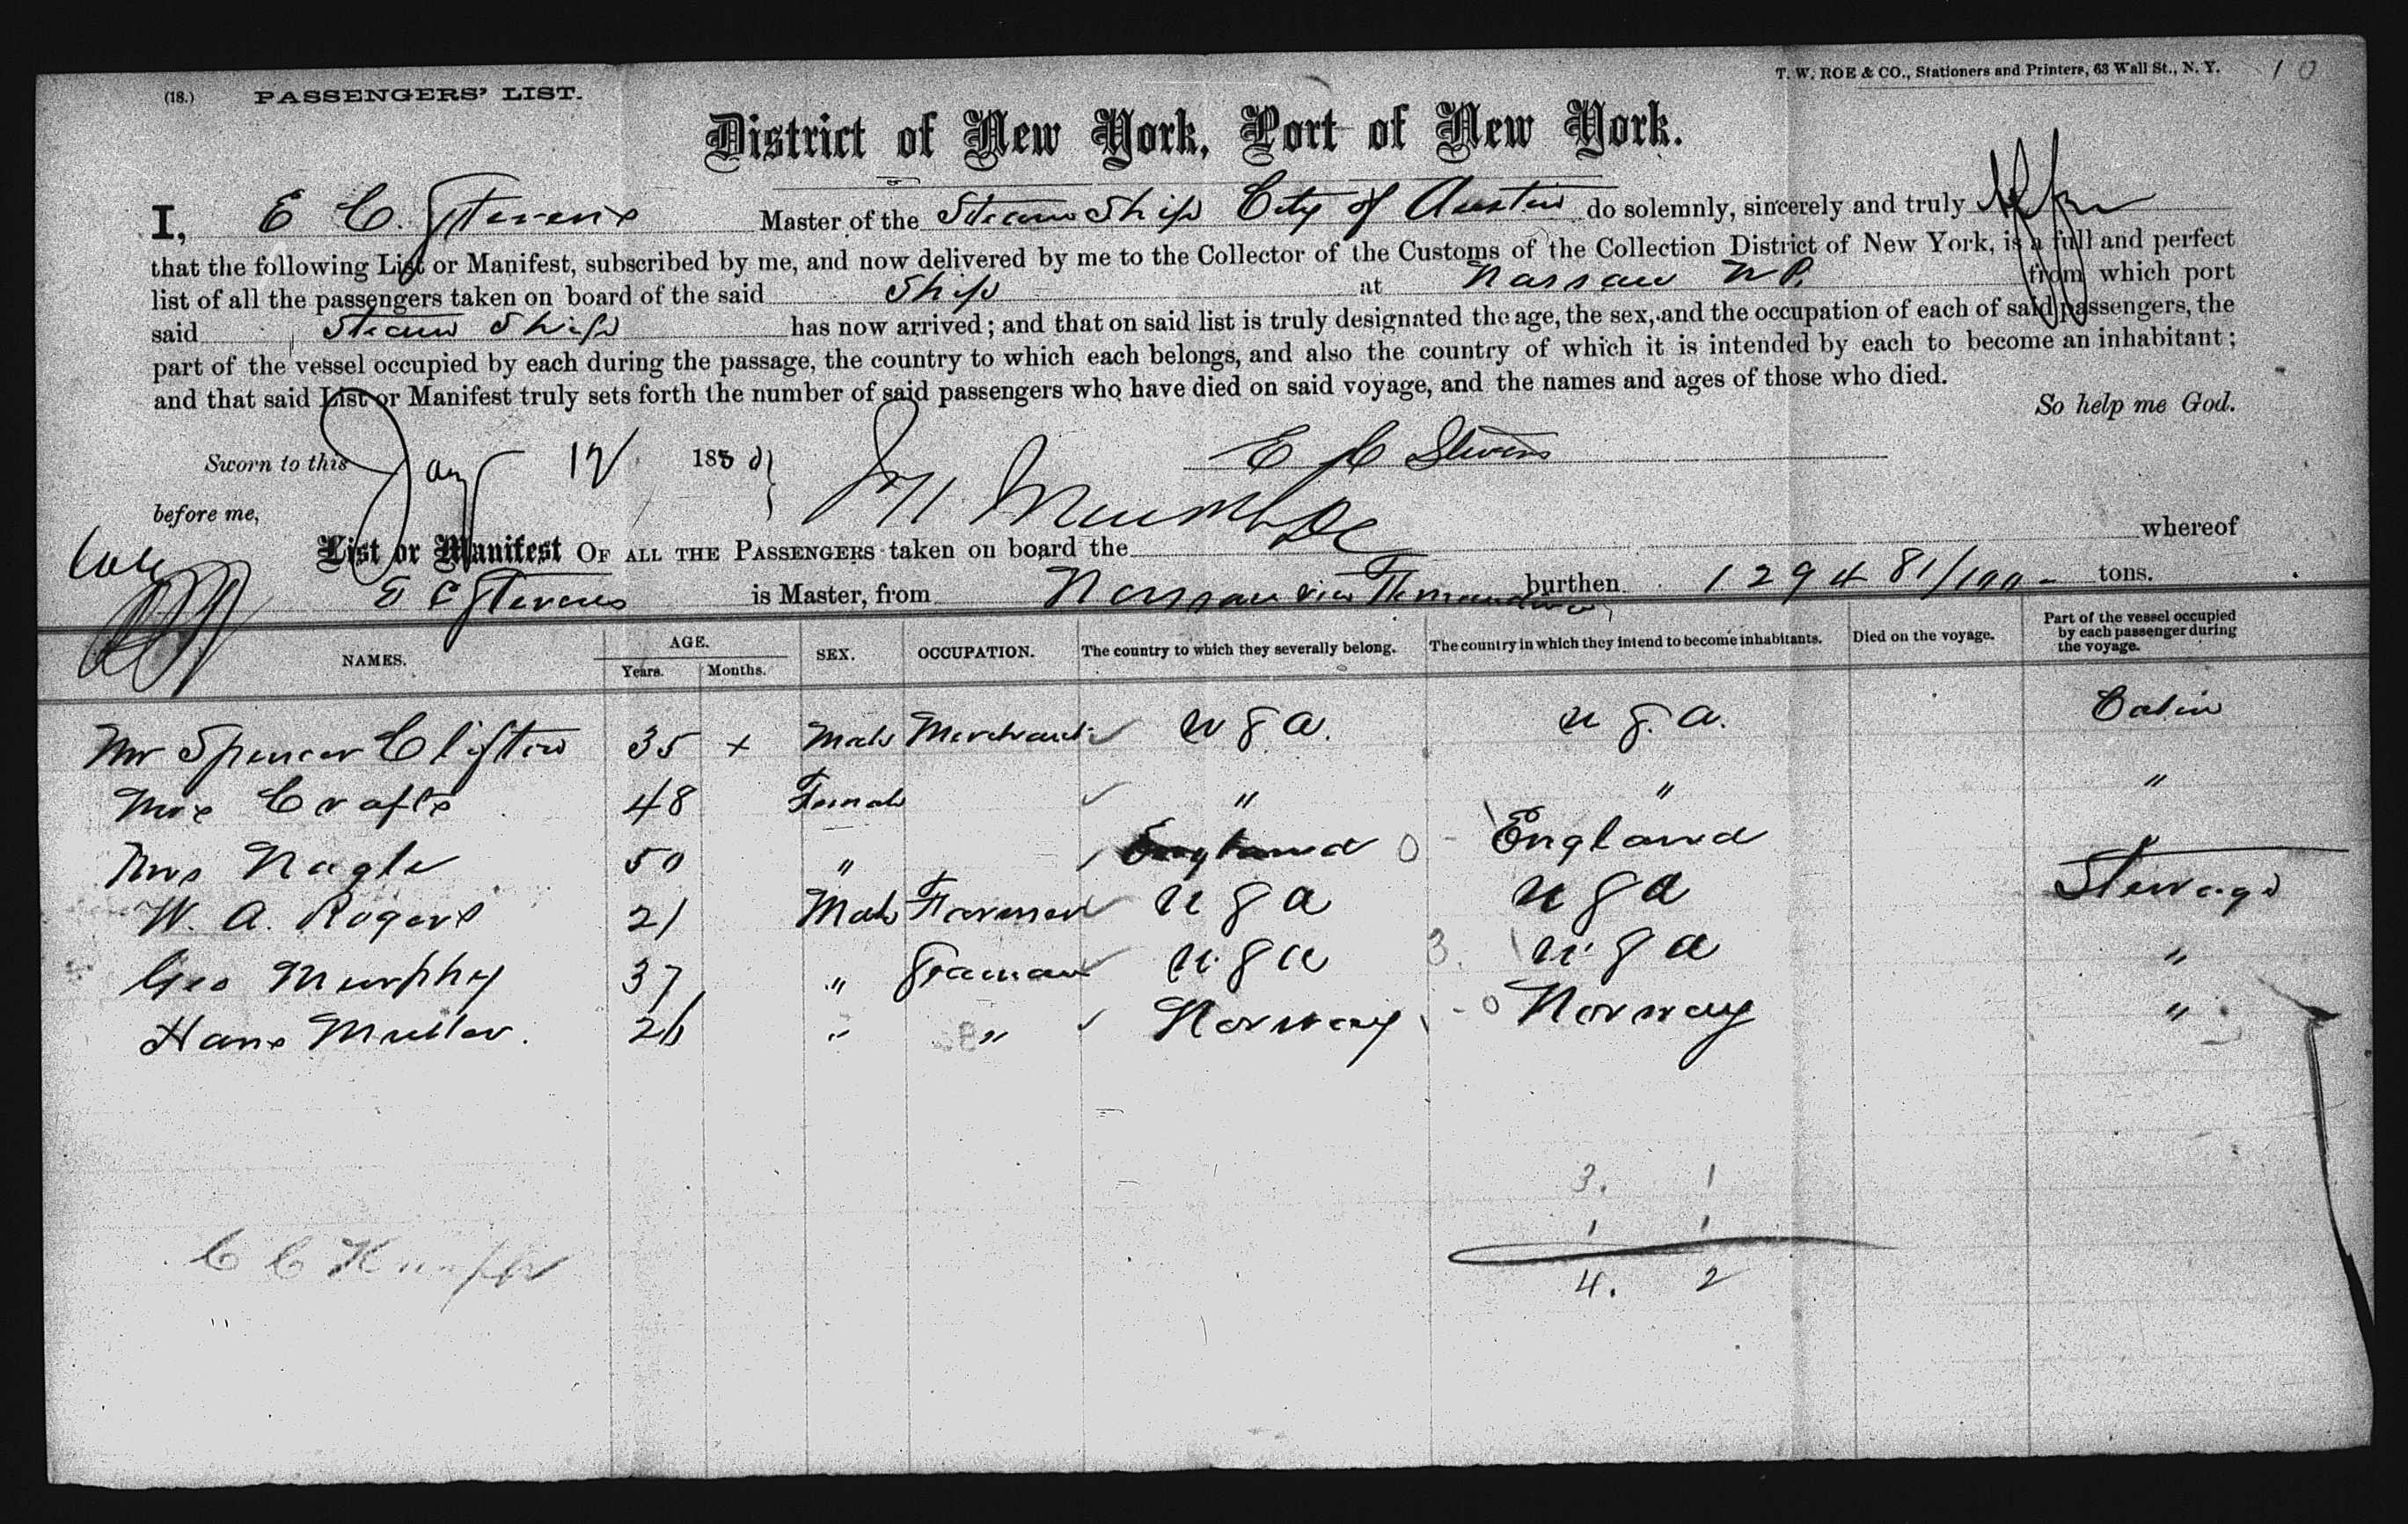 (18.) PASSENGERS' LIST. T. W. ROE & CO., Stationers and Printers, 63 Wall St., N. Y. 10
District of New York, Port of New York.
I, E C. Stevens Master of the Steam Ship City of Austin do solemnly, sincerely and truly
that the following List or Manifest, subscribed by me, and now delivered by me to the Collector of the Customs of the Collection District of New York, is a full and perfect
list of all the passengers taken on board of the said Ship at Nassau N P. from which port
said Steam Ship has now arrived; and that on said list is truly designated the age, the sex, and the occupation of each of said passengers, the
part of the vessel occupied by each during the passage, the country to which each belongs, and also the country of which it is intended by each to become an inhabitant;
and that said List or Manifest truly sets forth the number of said passengers who have died on said voyage, and the names and ages of those who died.
So help me God.
Sworn to this Jany 12 188 E C Stevens
before me,
List or Manifest OF ALL THE PASSENGERS taken on board the whereof
E C Stevens is Master, from Nassau via Fernandina burthen 1294 81/100 tons.
NAMES. AGE. Years. Months. SEX. OCCUPATION. The country to which they severally belong. The country in which they intend to become inhabitants. Died on the voyage. Part of the vessel occupied by each passenger during the voyage.
Mr Spencer Clifton 35 x Male Merchant U S A. U S. A. Cabin
Mrs Crafts 48 Female " " "
Mrs Nagle 50 " England 0 - England "
W. A. Rogers 21 Male Farmer U S A U S A Steerage
Geo Murphy 37 " Seaman U. S A 3. U. S A "
Hans Muller. 26 " " Norway - 0 Norway "
3. 1
1 1
C C
4. 2